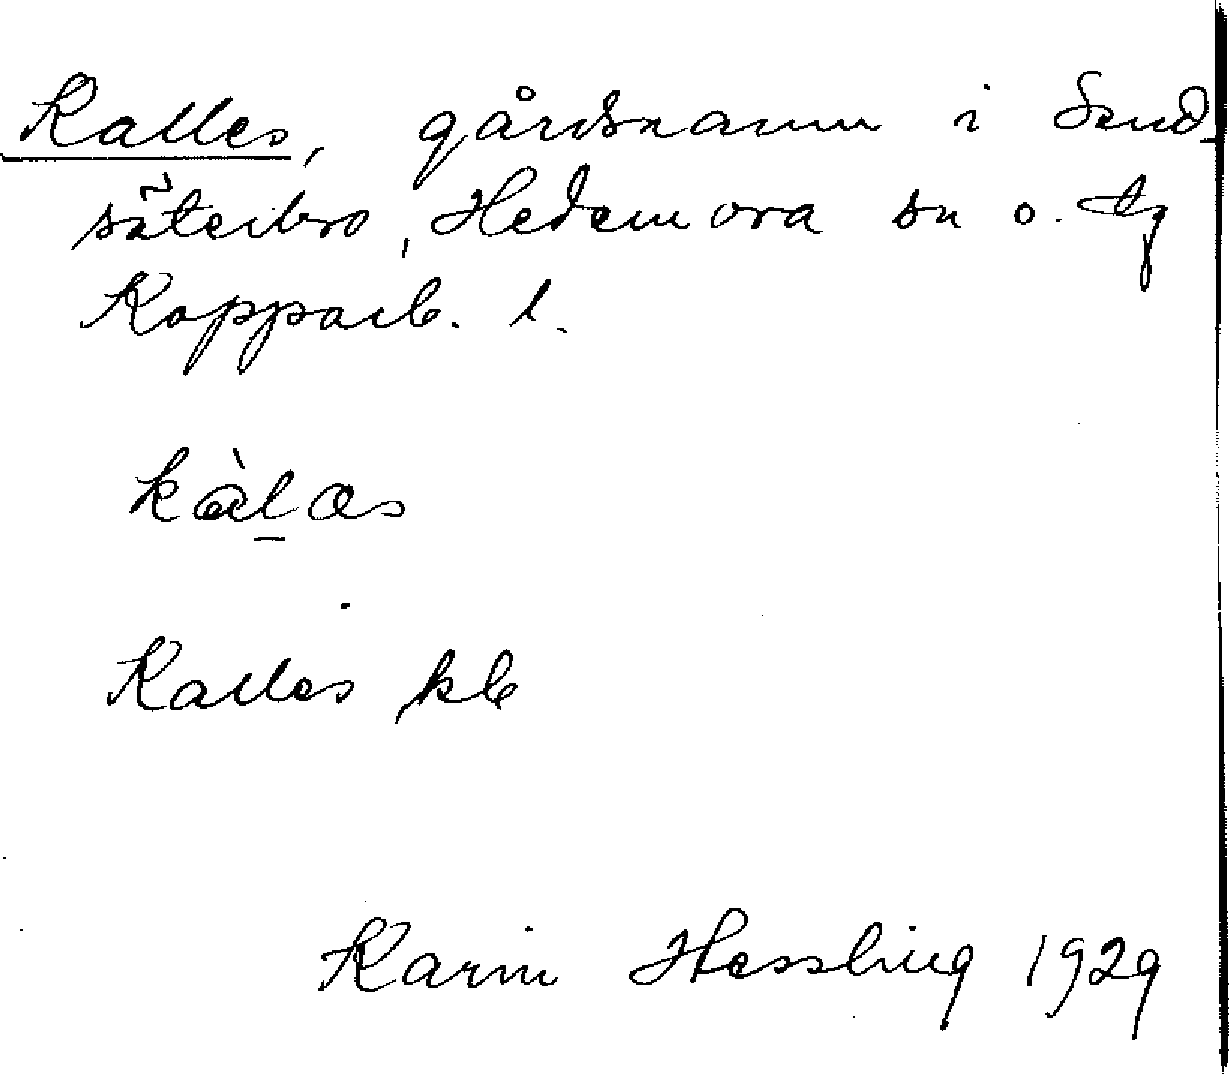 Kalles, gårdsnamn i Sand-
säterbro, Hedemora sn o. tg
Kopparb. l.
kàlas
Kalles kb
Karin Hessling 1929